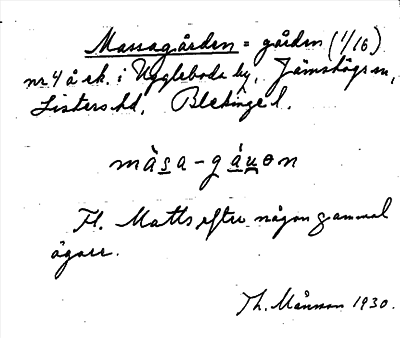 Massagården = gården (1/16)
nr 4 å sk. i Uggleboda by, Jämshögs sn,
Listers hd, Blekinge l.
màsa-gáuen
Fl. Matts efter någon gammal
ägare.
Th. Månsson 1930.